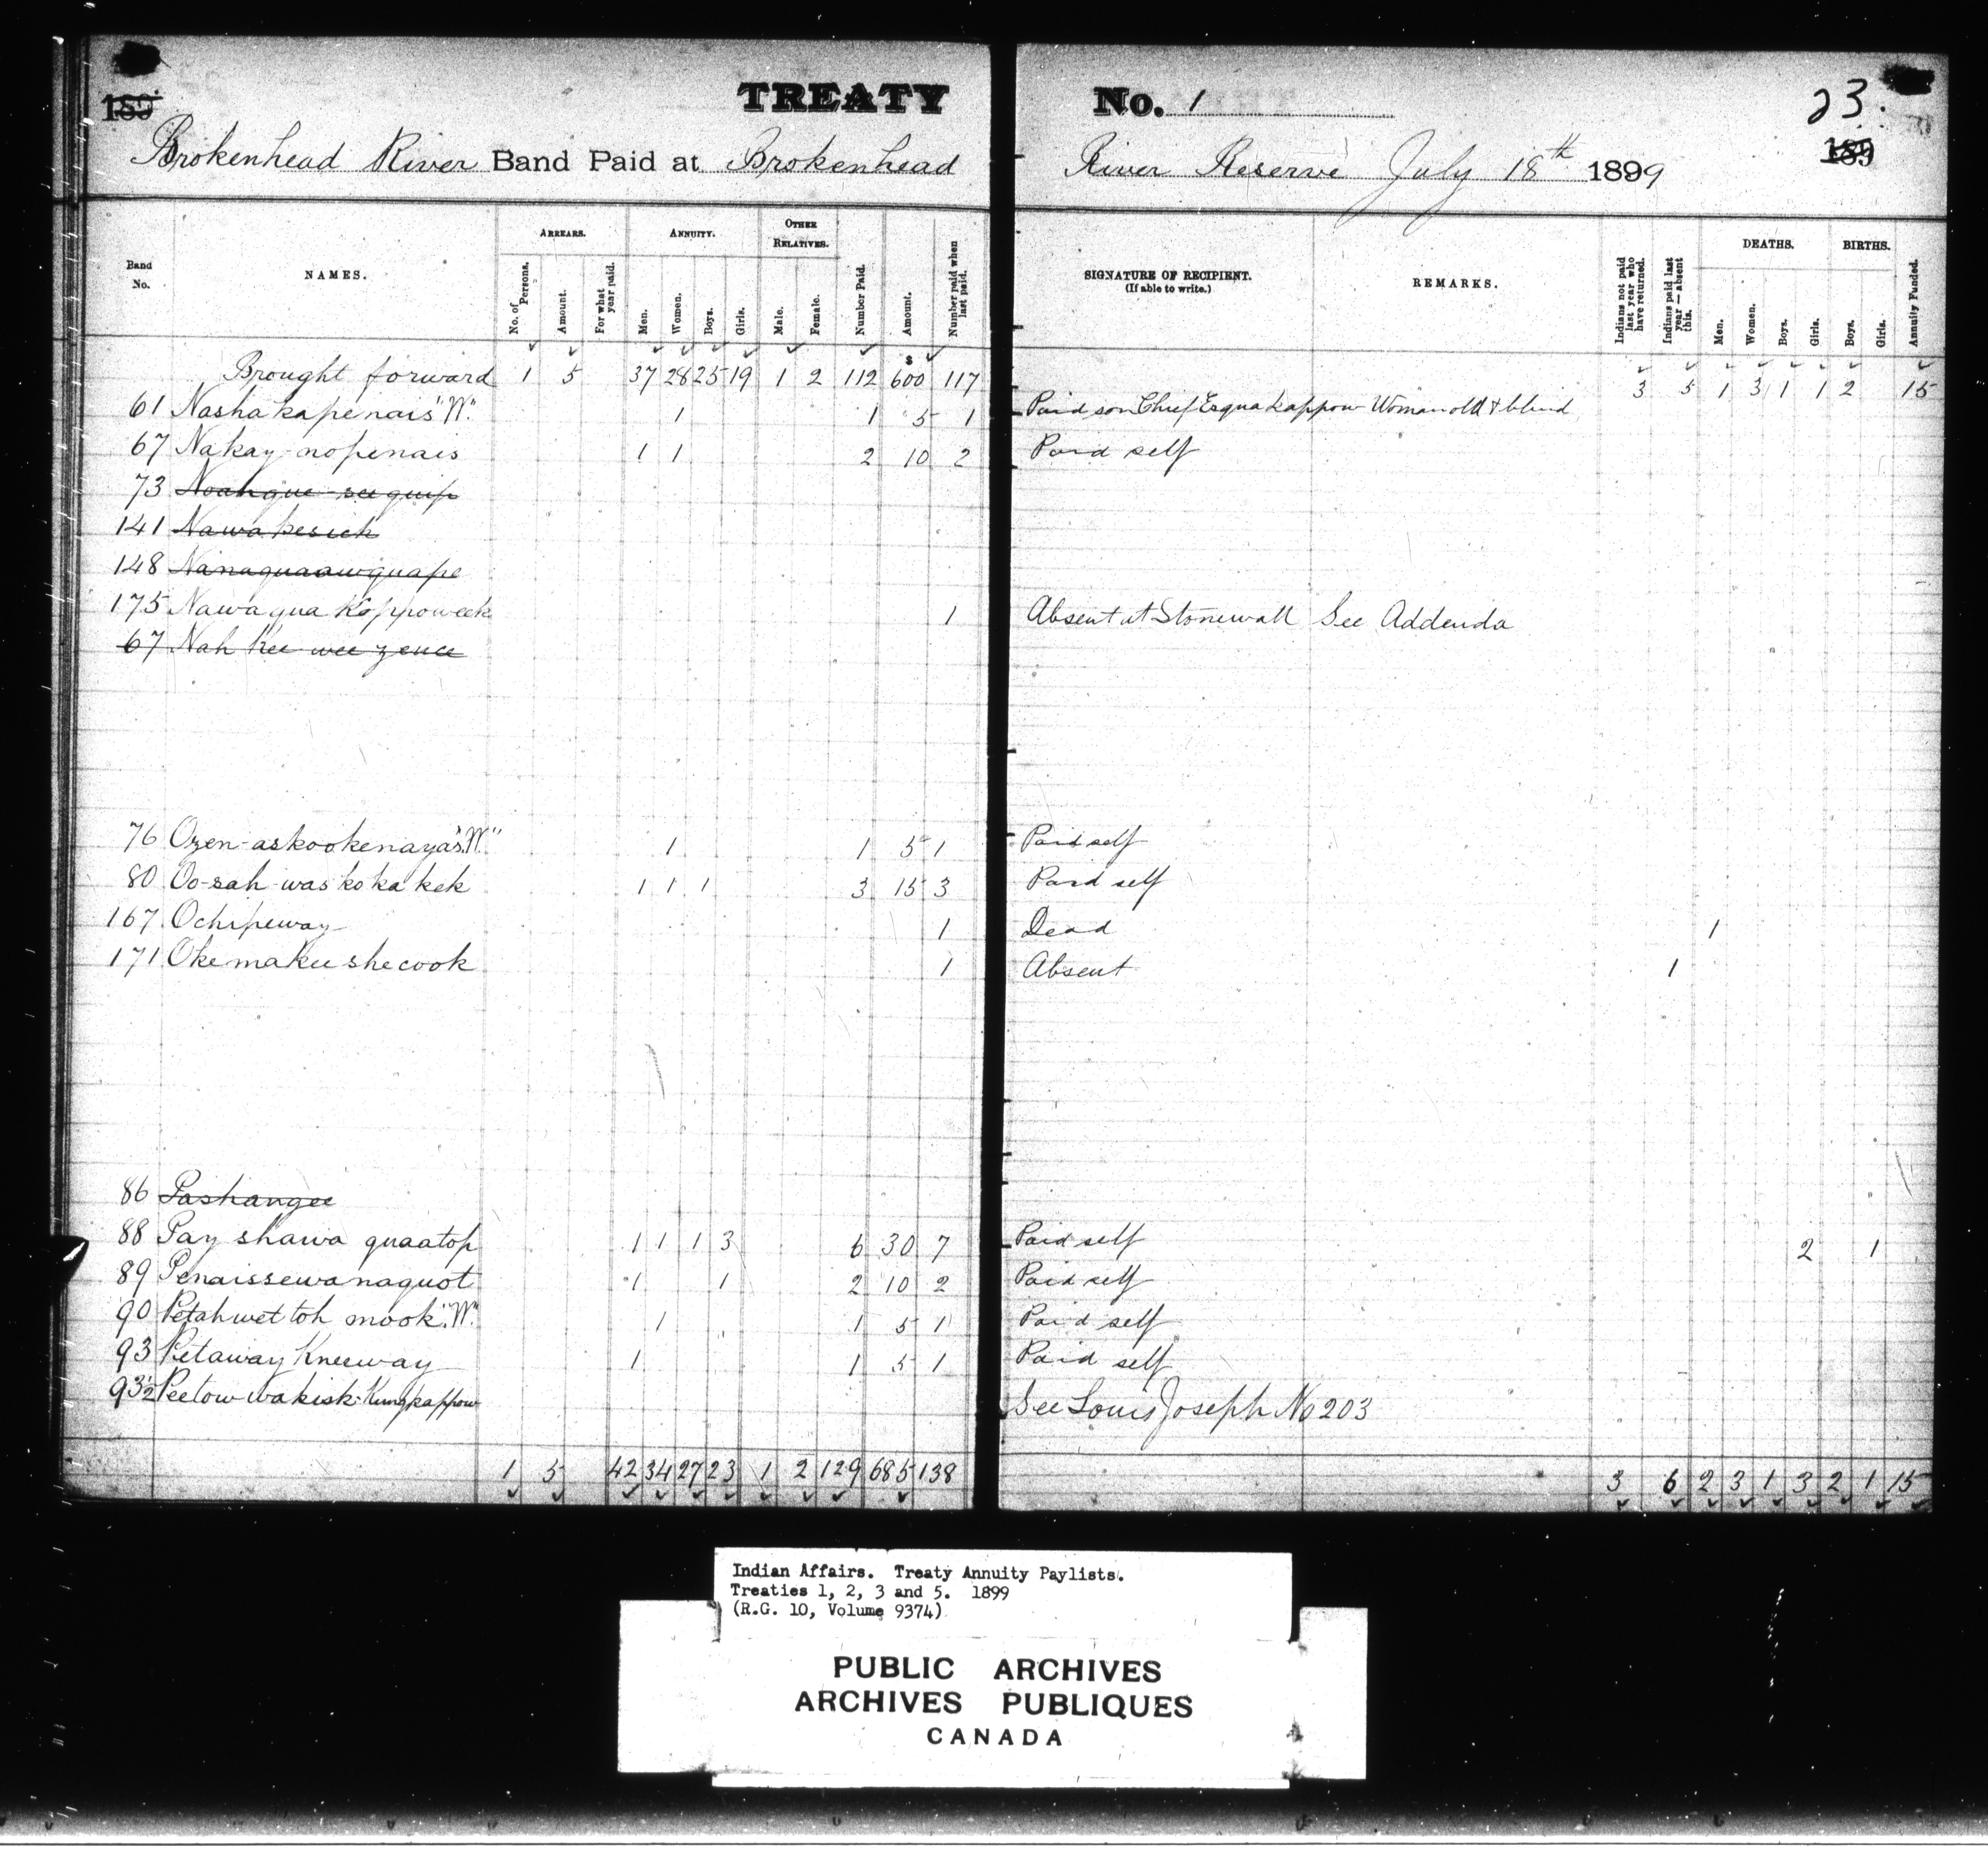 TREATY No. 1 23.
189 189
Brokenhead River Band Paid at Brokenhead River Reserve July 18th 1899
Band No. NAMES. ARREARS. ANNUITY. OTHER RELATIVES. SIGNATURE OF RECIPIENT. (If able to write.) REMARKS. DEATHS. BIRTHS.
No. of Persons. Amount. For what year paid. Men. Women. Boys. Girls. Male. Female. Number Paid. Amount. Number paid when last paid. Indians not paid last year who have returned. Indians paid last year — absent this. Men. Women. Boys. Girls. Boys. Girls. Annuity Funded.
$
Brought forward 1 5 37 28 25 19 1 2 112 600 117 3 5 1 3 1 1 2 15
61 Nashakapenais "W." 1 1 5 1 Paid son Chief Esquakappow Woman old & blind
67 Nakay-nopenais 1 1 2 10 2 Paid self
73 Noahgue-seequip
141 Nawakesich
148 Nanaquaawguape
175 Nawaqua Koppoweek 1 Absent at Stonewall See Addenda
67 Nah Kee wee zence
76 Ozen-askookenayas "W." 1 1 5 1 Paid self
80 Oo-sah-was ko ka kek 1 1 1 3 15 3 Paid self
167 Ochipeway 1 Dead 1
171 Okemakeeshecook 1 Absent 1
86 Pashangee
88 Pay shawa quaatop 1 1 1 3 6 30 7 Paid self 2 1
89 Penaissewanaquot 1 1 2 10 2 Paid self
90 Petahwet toh mook "W." 1 1 5 1 Paid self
93 Petaway Kneeway 1 1 5 1 Paid self
93½ Peetowwakisk-Kungkappow See Louis Joseph No 203
1 5 42 34 27 23 1 2 129 685 138 3 6 2 3 1 3 2 1 15
Indian Affairs. Treaty Annuity Paylists.
Treaties 1, 2, 3 and 5. 1899
(R.G. 10, Volume 9374)
PUBLIC ARCHIVES
ARCHIVES PUBLIQUES
CANADA